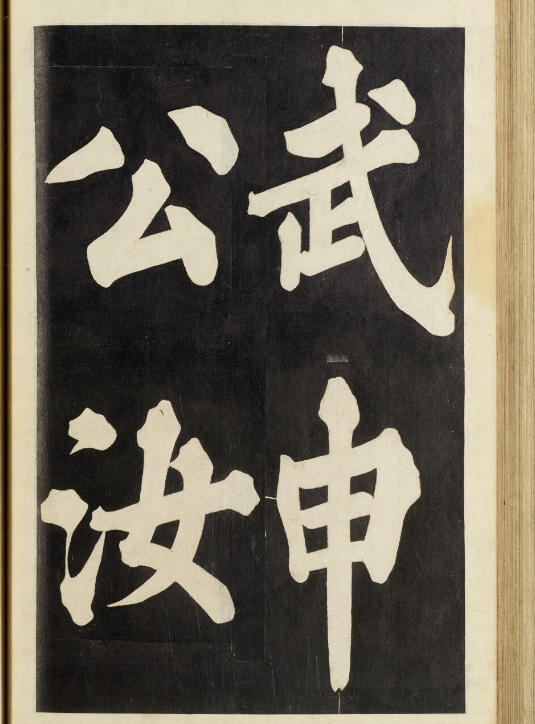 武申
公汝